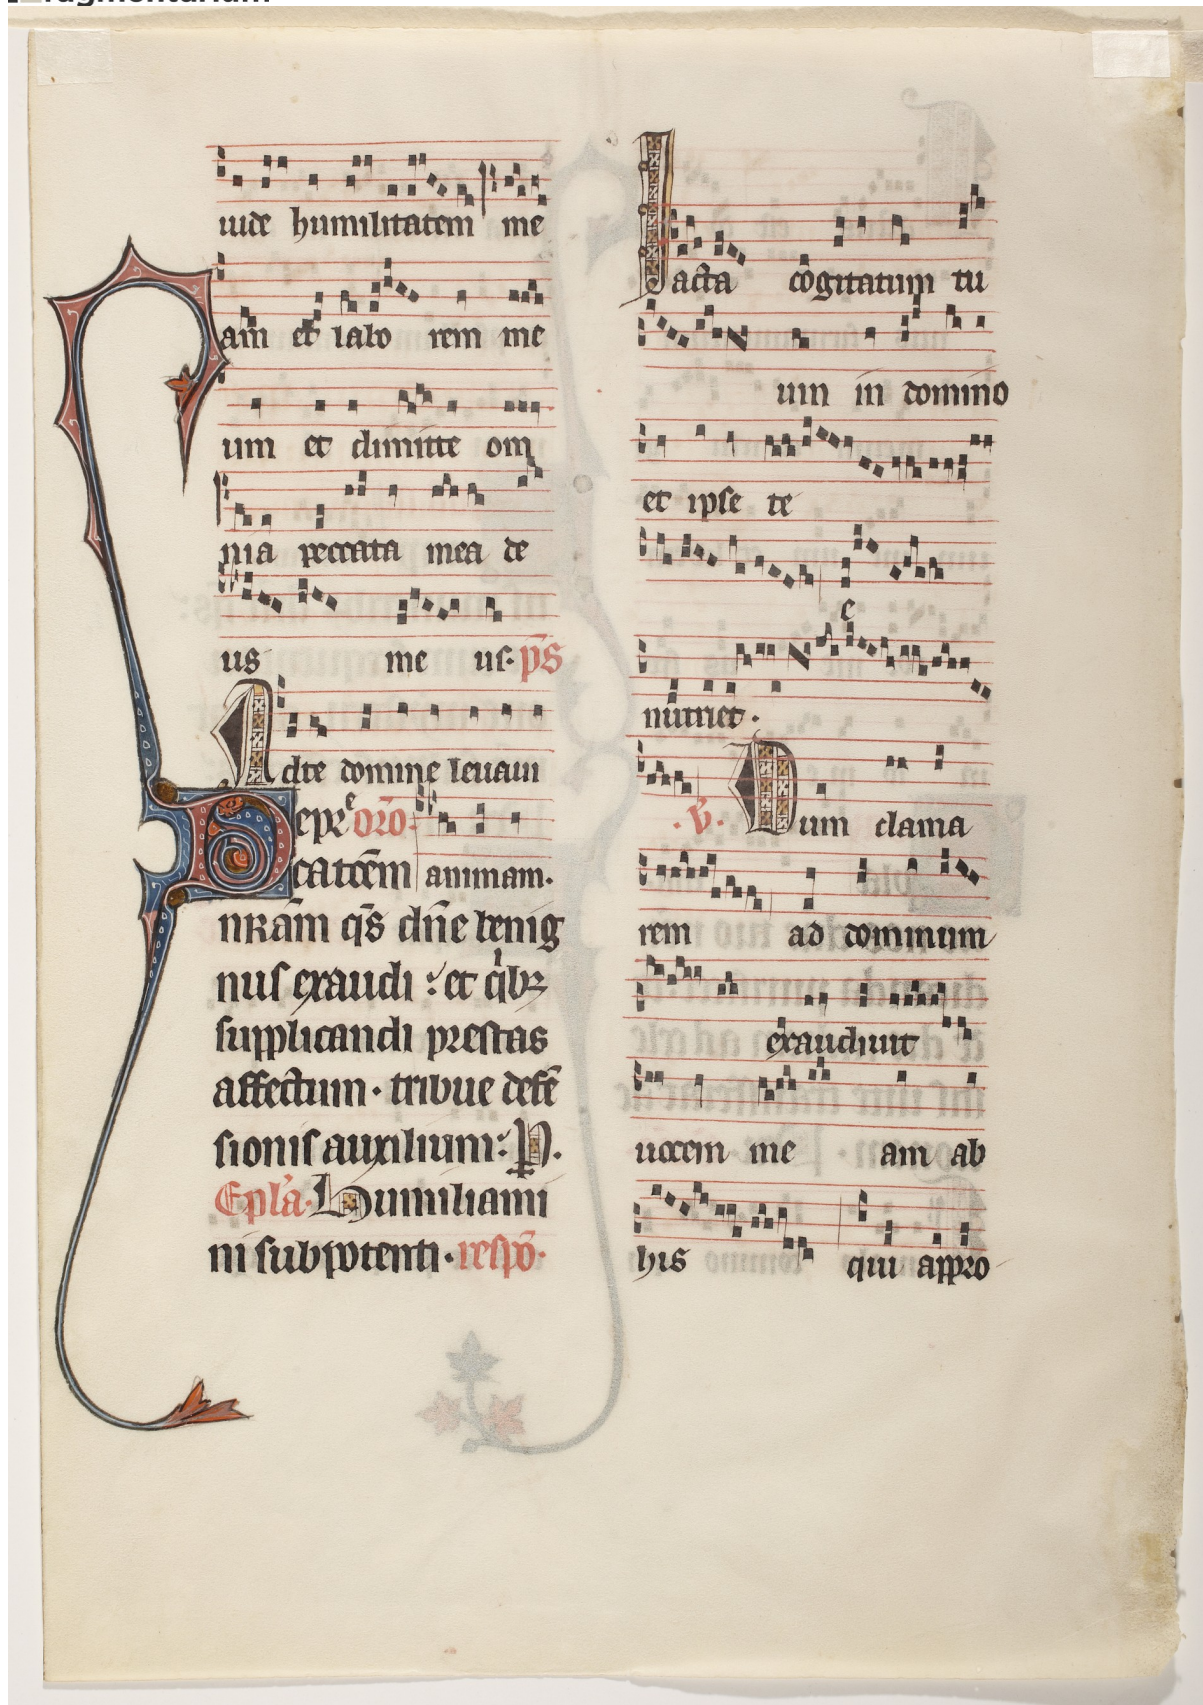 uide humilitatem me
am et labo rem me
um et dimitte om
nia peccata mea de
us me us. p̄s
Adte domine leuaui
Depreͨ or̄o.
catōem animam.
nr̄am q̄s dn̄e benig
nus exaudi : et qͥbꝫ
supplicandi prestas
affectum . tribue defē
sionis auxilium : P.
Epl̄a. Humiliami
ni sub potenti . respō.
Iacta cogitatum tu
um in domino
et ipse te
e
nutriet .
.v̄. Dum clama
rem ad dominum
exaudiuit
uocem me am ab
his qui appro